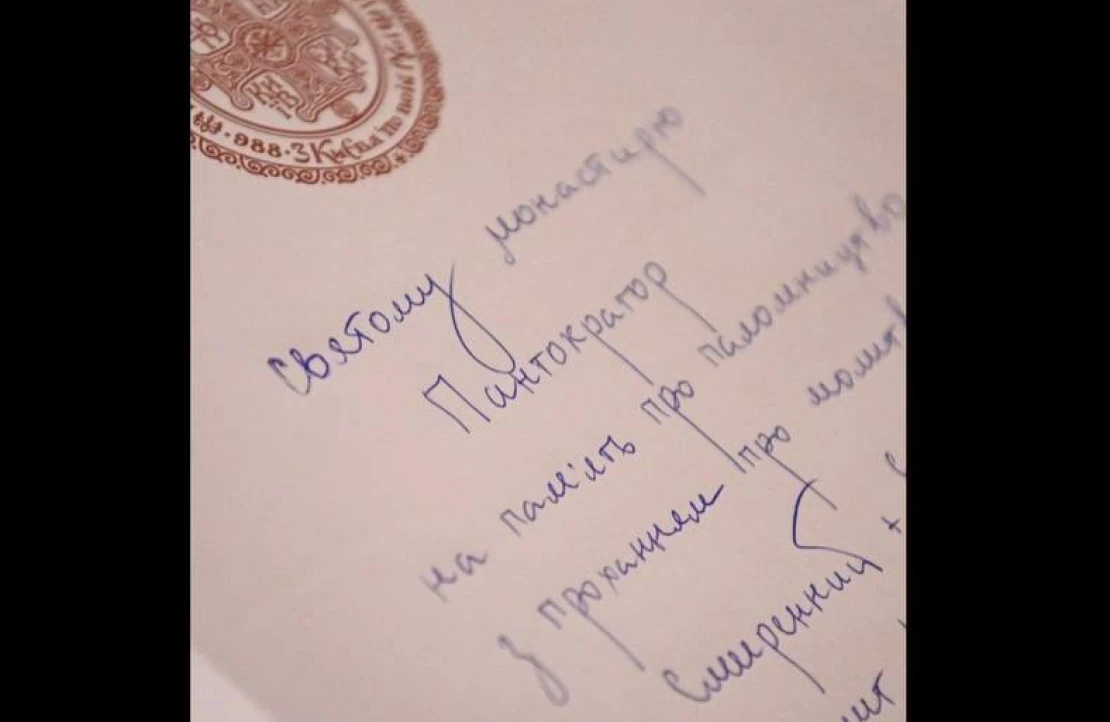 988 · З Києва по всій
Святому монастирю
Пантократор
на пам'ять про паломництво
з проханням про
Смиренний +